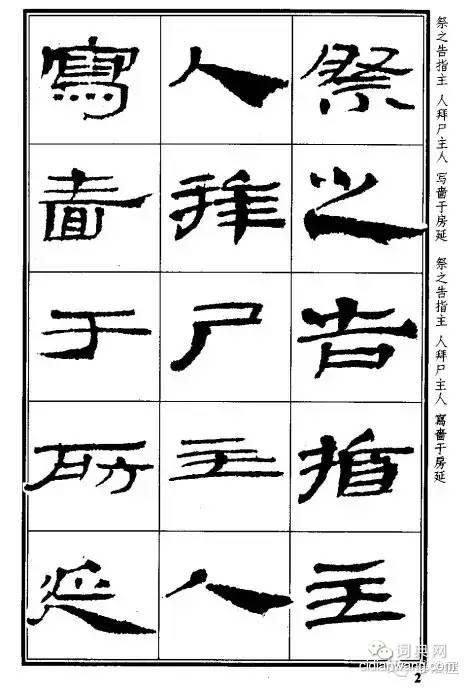 祭之告指主
人拜尸主人
寫嗇于房延
祭之告指主 人拜尸主人 写啬于房延 祭之告指主 人拜尸主人 寫嗇于房延
词典网
cidianwang.com
2